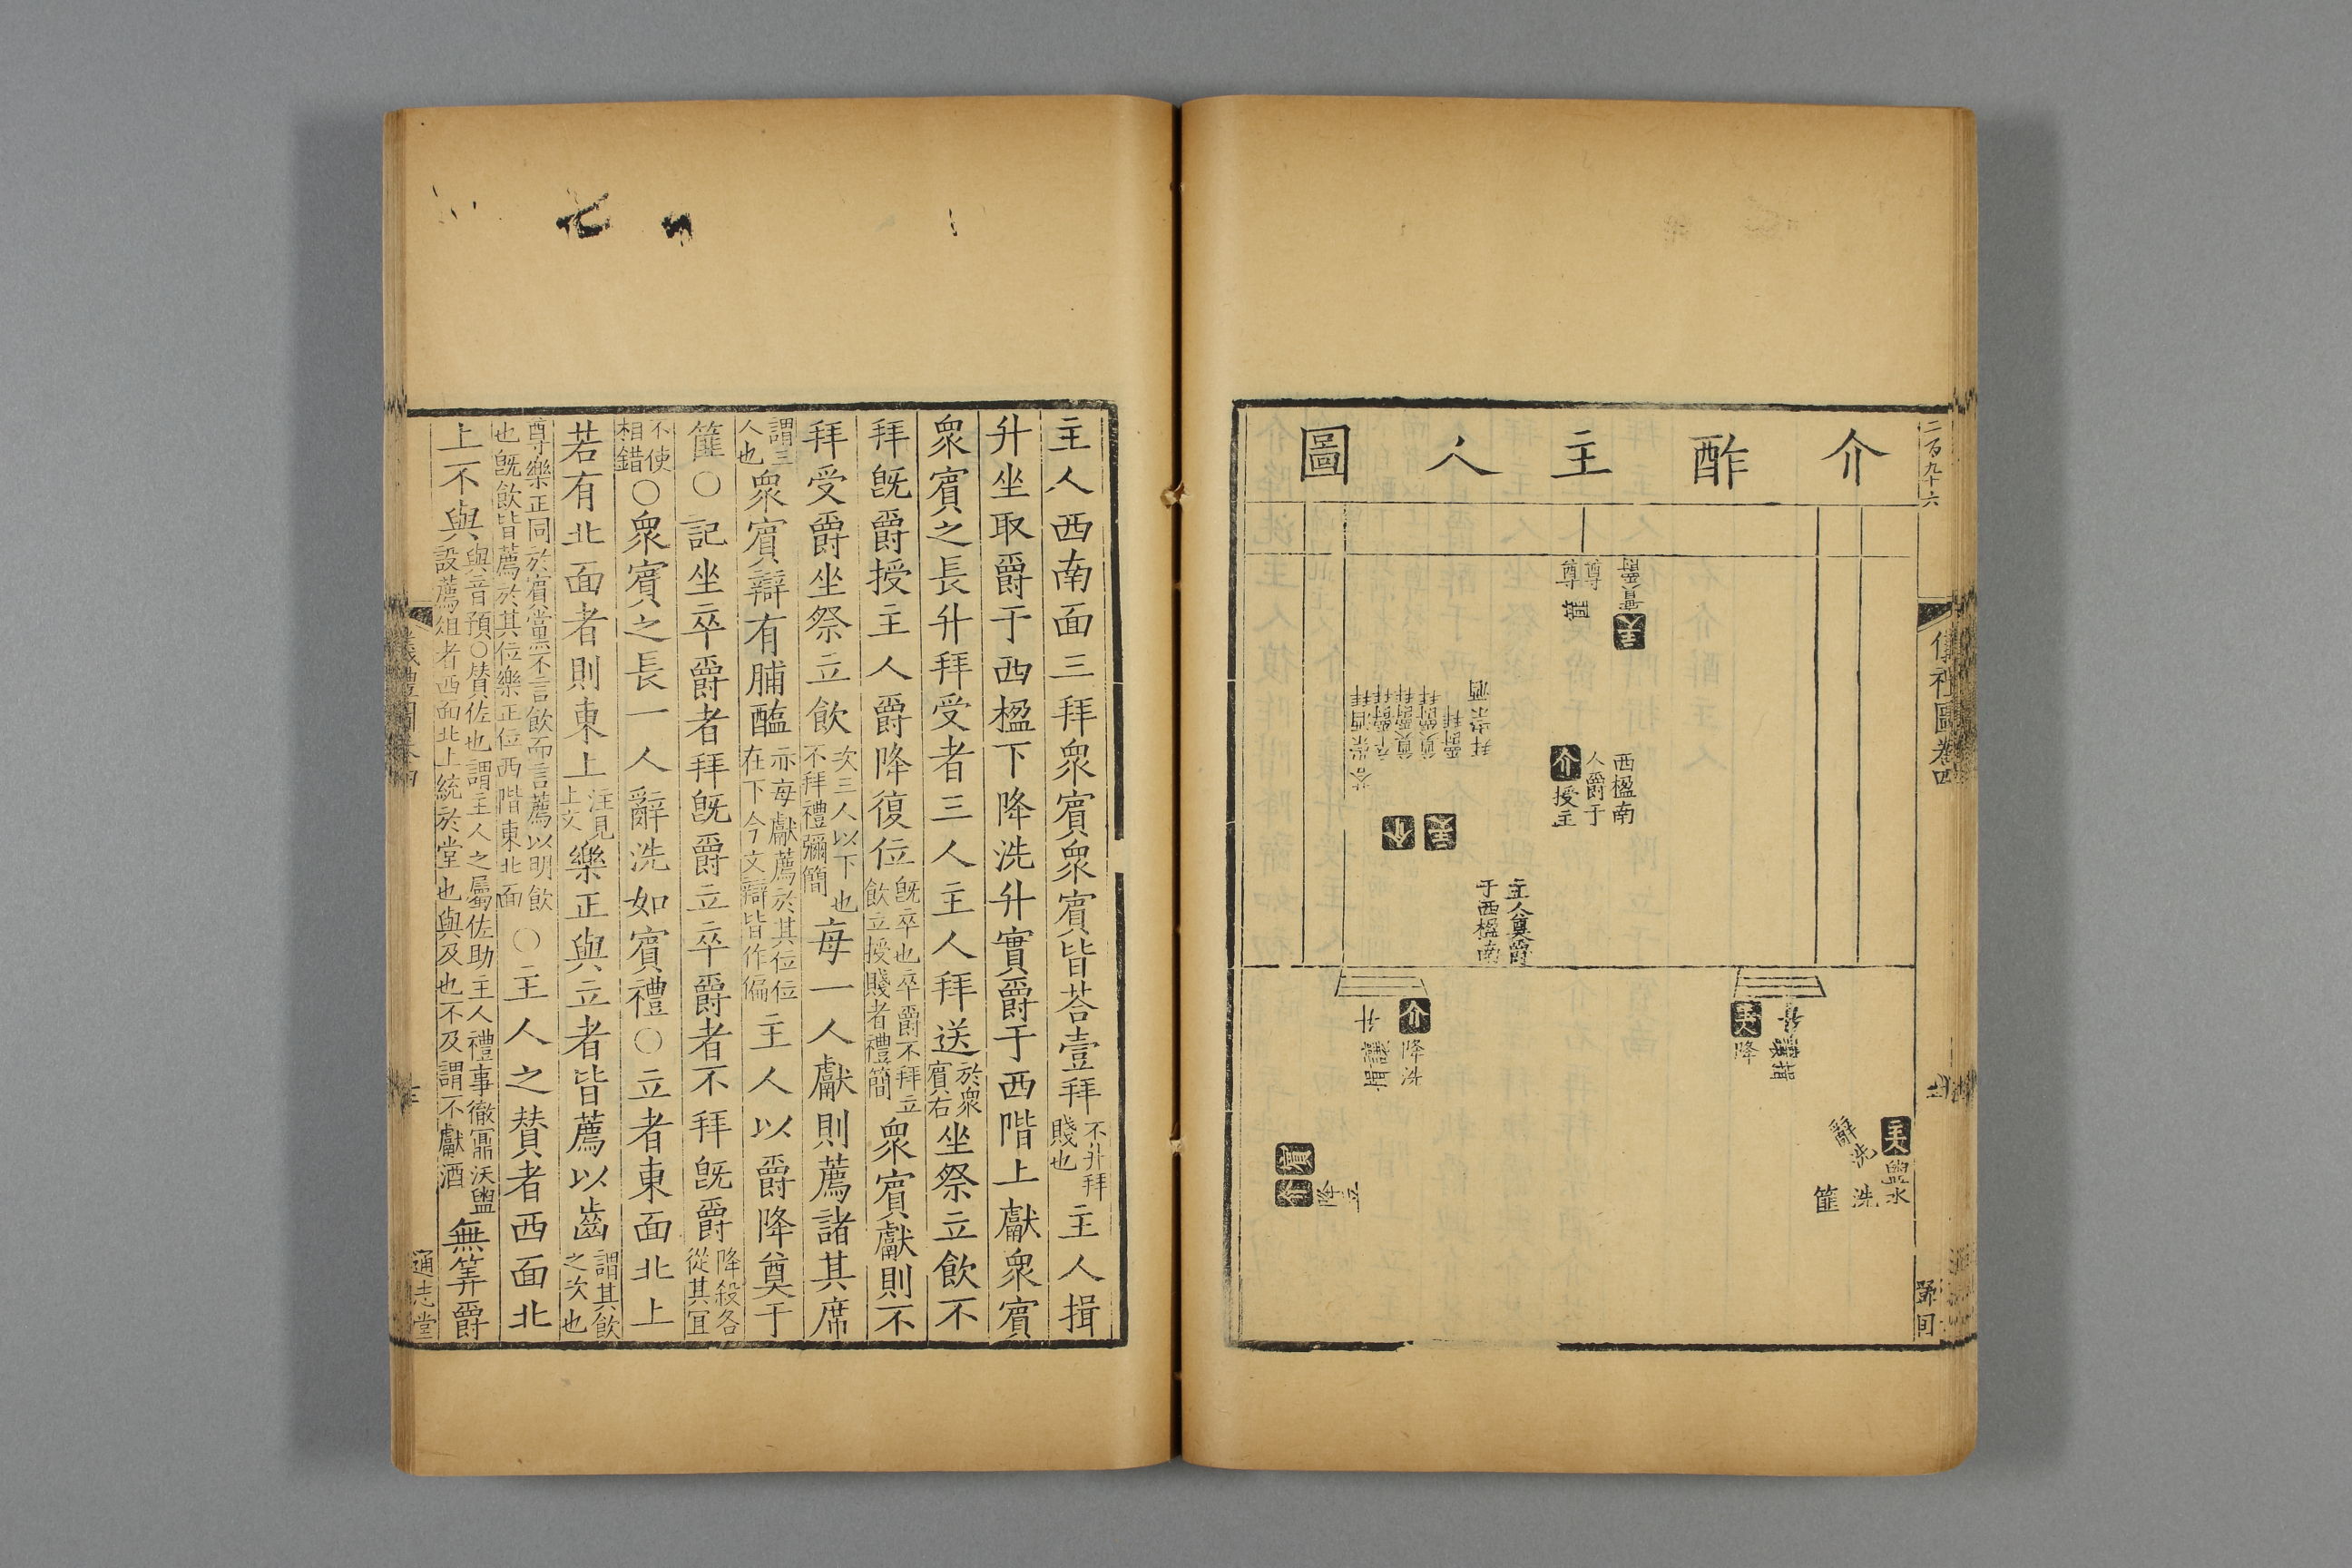 介酢主人圖
二百九十六
儀禮圖卷四
尊
尊
篚
主人
實爵
介
授主
人爵于
西楹南
拜崇酒
介
主人
主人奠爵
于西楹南
介
降洗
升
主人
降
主人
盥水
辭洗
洗
篚
賓
介
降立
主人西南面三拜衆賓衆賓皆荅壹拜不升拜賤也主人揖
升坐取爵于西楹下降洗升實爵于西階上獻衆賓
衆賓之長升拜受者三人主人拜送於衆賓右坐祭立飲不
拜旣爵授主人爵降復位旣卒也卒爵不拜立飲立授賤者禮簡衆賓獻則不
拜受爵坐祭立飲次三人以下也不拜禮彌簡每一人獻則薦諸其席
謂三人也衆賓辯有脯醢亦每獻薦於其位位在下今文辯皆作徧主人以爵降奠于
篚○記坐卒爵者拜旣爵立卒爵者不拜旣爵降殺各從其宜
不使相錯○衆賓之長一人辭洗如賓禮○立者東面北上
若有北面者則東上注見上文樂正與立者皆薦以齒謂其飲之次也
尊樂正同於賓黨不言飲而言薦以明飲也旣飲皆薦於其位樂正位西階東北面○主人之贊者西面北
上不與與音預○贊佐也謂主人之屬佐助主人禮事徹鼏沃盥設薦俎者西面北上統於堂也與及也不及謂不獻酒無筭爵
通志堂